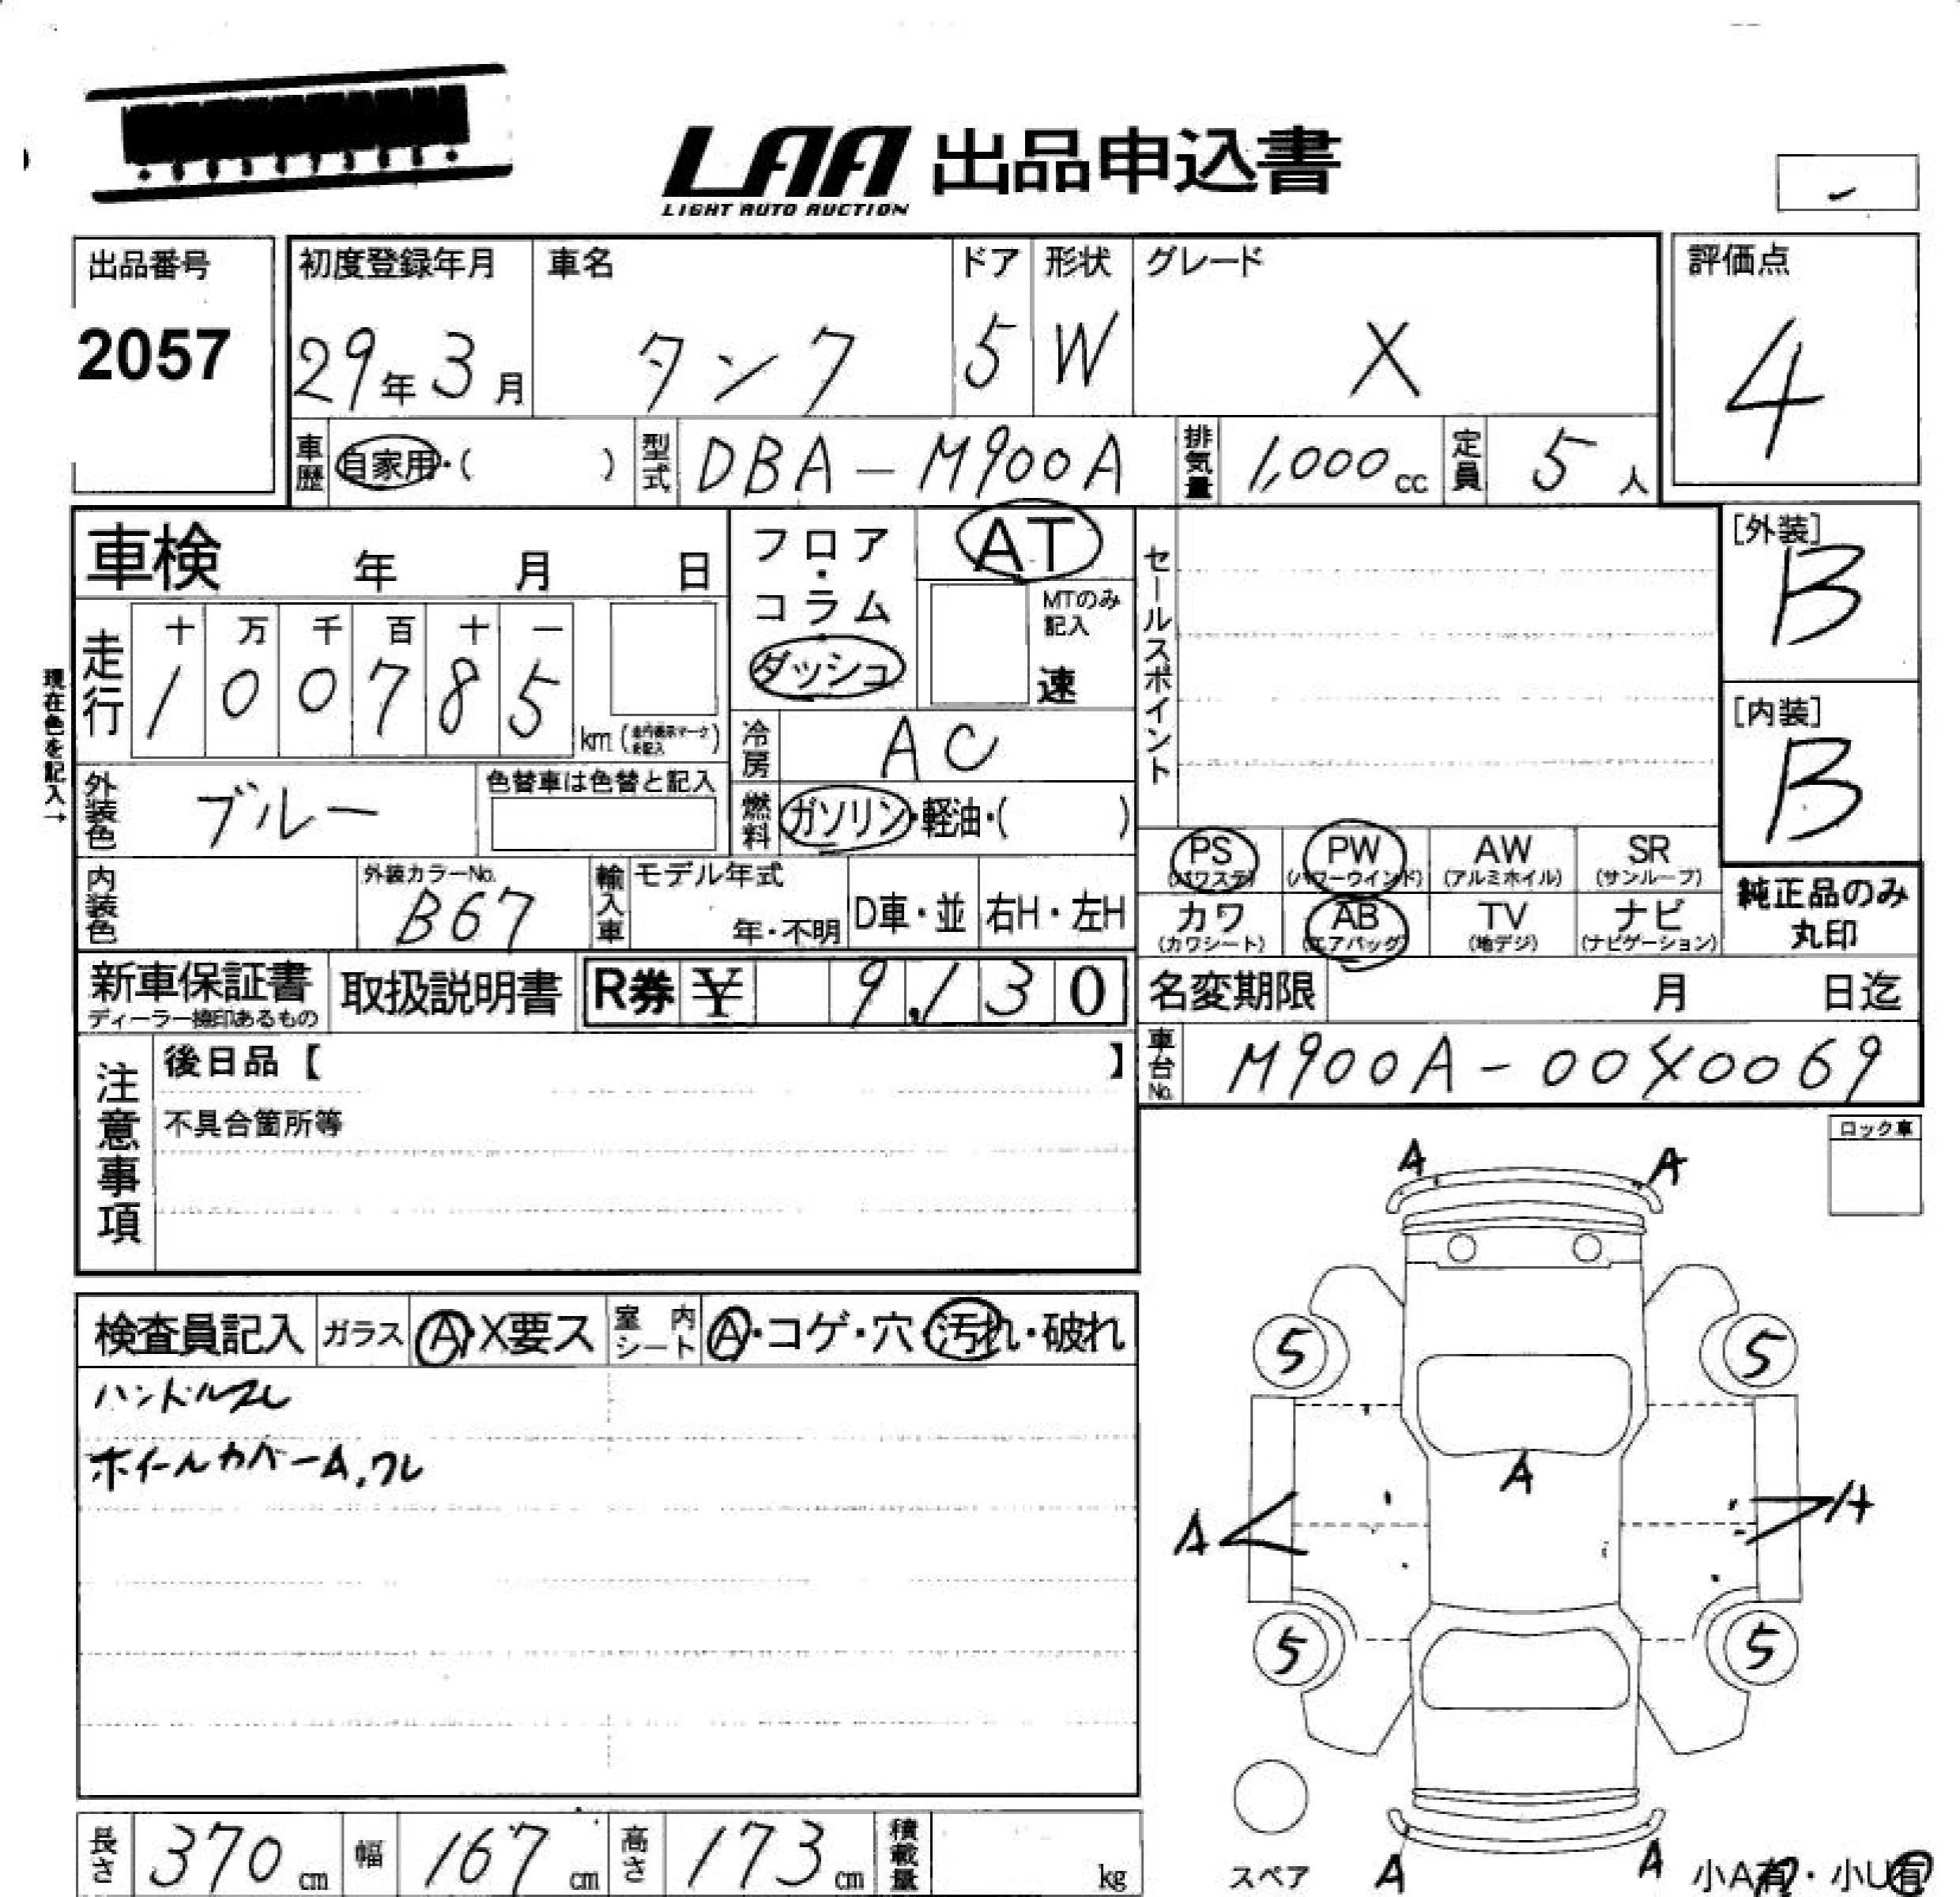 LAA 出品申込書
LIGHT AUTO AUCTION
出品番号
2057
初度登録年月 車名 ドア 形状 グレード
29年3月 タンク 5 W X
評価点
4
車歴 自家用・( ) 型式 DBA-M900A 排気量 1,000cc 定員 5人
車検 年 月 日
フロア・コラム
ダッシュ
AT
MTのみ記入
速
セールスポイント
[外装]
B
[内装]
B
現在色を記入→
走行 十 万 千 百 十 一
1 0 0 7 8 5 km (走行表示マークを記入)
冷房 AC
外装色 ブルー 色替車は色替と記入
燃料 ガソリン・軽油・( )
内装色 外装カラーNo. B67
輸入車 モデル年式 年・不明 D車・並 右H・左H
PS (パワステ) PW (パワーウインド) AW (アルミホイル) SR (サンルーフ)
カワ (カワシート) AB (エアバッグ) TV (地デジ) ナビ (ナビゲーション)
純正品のみ丸印
新車保証書 ディーラー捺印あるもの
取扱説明書
R券 ¥ 9,130
名変期限 月 日迄
車台No. M900A-0040069
注意事項
後日品【 】
不具合箇所等
ロック車
検査員記入 ガラス A・X要ス 室内シート A・コゲ・穴・汚れ・破れ
ハンドルスレ
ホイールカバーA,ワレ
A A
5 5
A
A A
5 5
スペア
A A
小A有・小U有
長さ 370cm 幅 167cm 高さ 173cm 積載量 kg